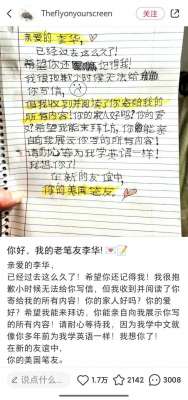 Theflyonyourscreen
关注
亲爱的李华，
已经过去这么久了！
希望你还记得我！
我很抱歉小时候无法给
你写信，
但我收到并阅读了你寄给我的
所有内容！你的家人好吗？你的爱
好？希望我能来拜访，你能亲
自向我展示你写的所有内容！
请耐心等待我，因为我学中文
就像你多年前为我学英语一样！
我想你了！
在新的友谊中，
你的美国笔友。
你好，我的老笔友李华！💌📝
亲爱的李华，
已经过去这么久了！希望你还记得我！我很抱
歉小时候无法给你写信，但我收到并阅读了你
寄给我的所有内容！你的家人好吗？你的爱
好？希望我能来拜访，你能亲自向我展示你写
的所有内容！请耐心等待我，因为我学中文就
像你多年前为我学英语一样！我想你了！
在新的友谊中，
你的美国笔友。
说点什么...
1.7万
2142
3008